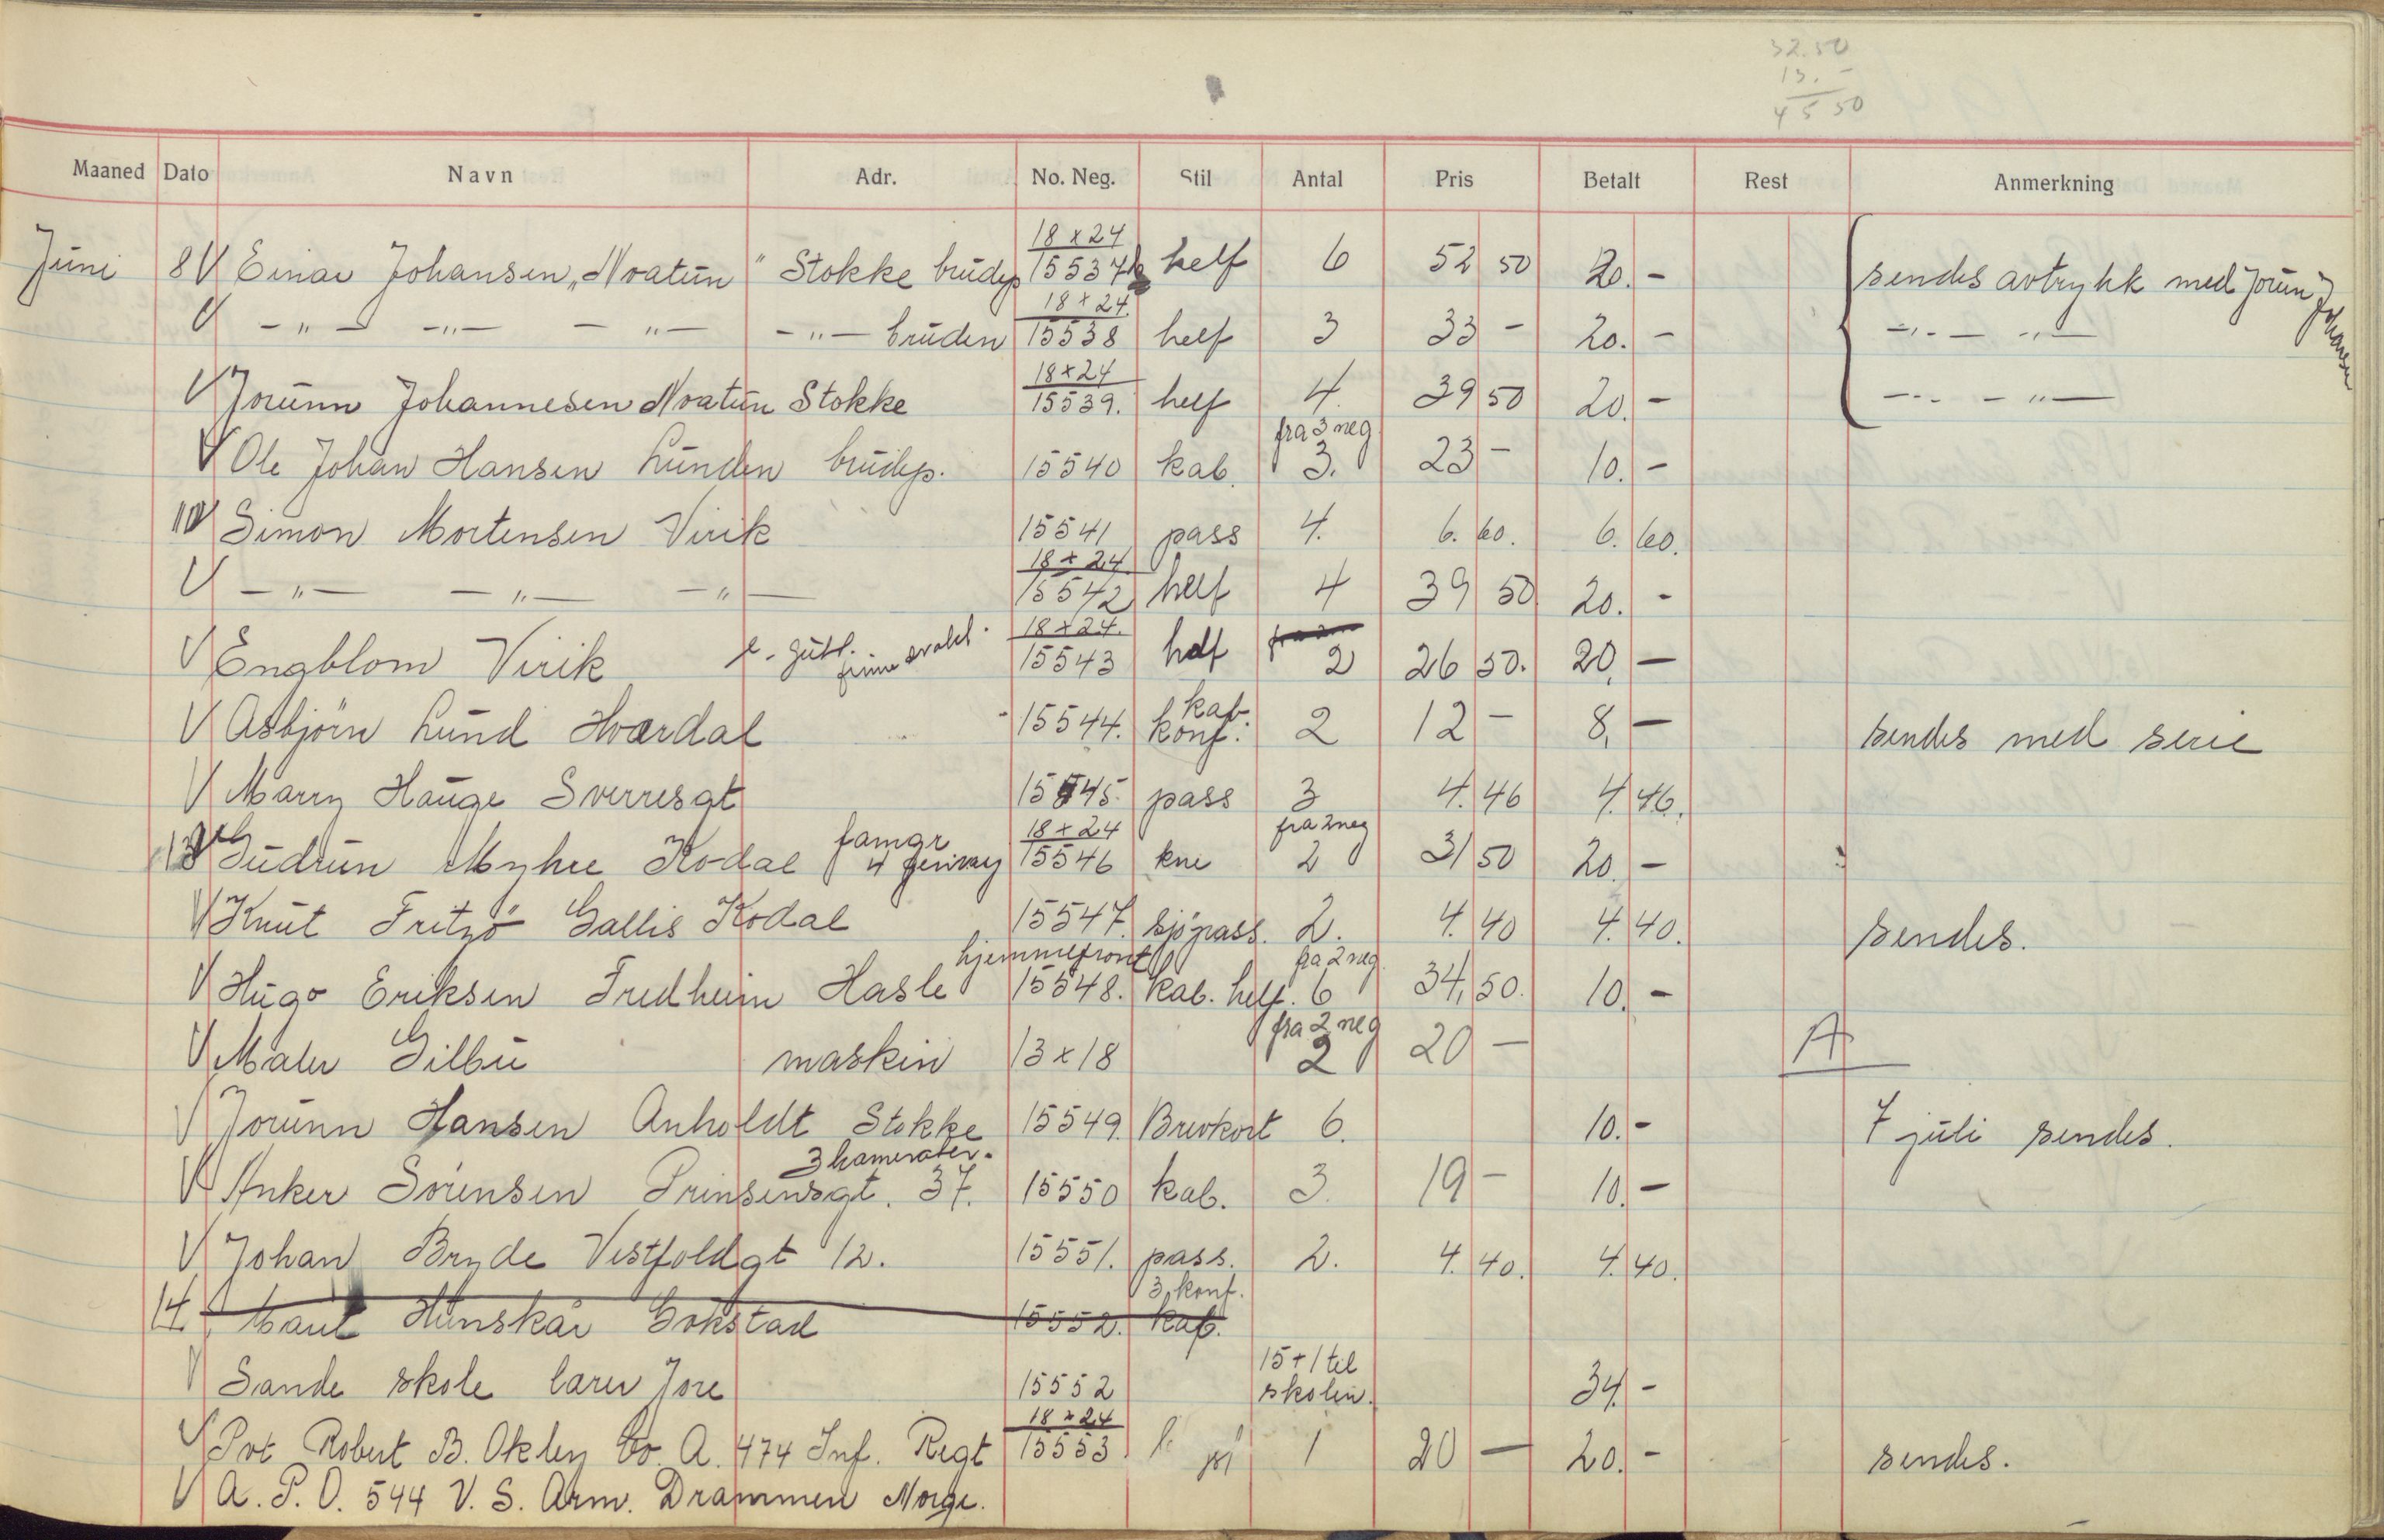 32.50
13.-
45 50
Maaned Dato Navn Adr. No. Neg. Stil Antal Pris Betalt Rest Anmerkning
18x24
Juni 8 V Einar Johansen „Noatun" Stokke brudep 15537 helf 6 52 50 20.- sendes avtrykk med Jorun Johansen
18x24.
V -"- -"- -"- -"- bruden 15538 helf 3 33 - 20.- -"- -"-
18x24
V Jorunn Johannesen Noatun Stokke 15539. helf 4. 39 50 20.- -"- -"-
fra 3 neg
V Ole Johan Hansen Lunden brudep. 15540 kab. 3. 23 - 10.-
11 V Simon Mortensen Virik 15541 pass 4. 6. 60. 6. 60.
18x24
V -"- -"- -"- 15542 helf 4 39 50 20.-
18x24.
V Engblom Virik l. gutt. 15543 helf 2 26 50. 20,-
kab.
V Asbjörn Lund Hvardal 15544. konf. 2 12 - 8,- sendes med serie
V Marry Hauge Sverresgt 15545. pass 3 4. 46 4. 46.
famgr 18x24 fra 2 neg
13 V Gudrun Myhre Kodal 4 15546 kne 2 31 50 20.-
V Knut Fritzö Gallis Kodal 15547. sjöpass. 2. 4. 40 4. 40. sendes.
hjemmefront fra 2 neg
V Hugo Eriksen Fredheim Hasle 15548. kab. helf. 6 34, 50. 10.-
fra 2 neg
V Maler Gilbu maskin 13x18 2 20 - A
V Jorunn Hansen Anholdt Stokke 15549. Brevkort 6. 10.- 7 juli sendes.
3 kamerater.
V Anker Sörensen Prinsensgt. 37. 15550 kab. 3. 19 - 10.-
V Johan Bryde Vestfoldgt 12. 15551. pass. 2. 4. 40. 4. 40.
3 konf.
14. Hunskår Gokstad 15552. kab.
15+1 til
V Sande skole lærer Jore 15552 skolen. 34.-
18x24
V Pvt Robert B. Okley Co. A. 474 Inf. Regt 15553. 1 20 - 20.- sendes.
V A. P. O. 544 U. S. Arm. Drammen Norge.